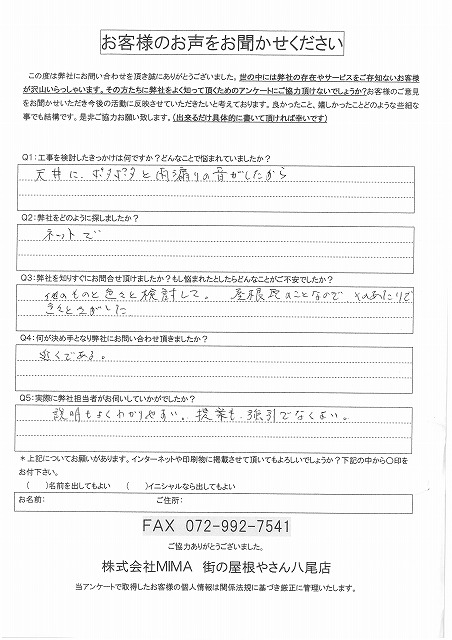 お客様のお声をお聞かせください
この度は弊社にお問い合わせを頂き誠にありがとうございました。世の中には弊社の存在やサービスをご存知ないお客様
が沢山いらっしゃいます。その方たちに弊社をよく知って頂くためのアンケートにご協力頂けないでしょうか?お客様のご意見
をお聞かせいただき今後の活動に反映させていただきたいと考えております。良かったこと、嬉しかったことどのような些細な
事でも結構です。是非ご協力お願い致します。(出来るだけ具体的に書いて頂ければ幸いです)
Q1:工事を検討したきっかけは何ですか?どんなことで悩まれていましたか?
天井に、ポタポタと雨漏りの音がしたから
Q2:弊社をどのように探しましたか?
ネットで
Q3:弊社を知りすぐにお問合せ頂けましたか?もし悩まれたとしたらどんなことがご不安でしたか?
他のものと色々と検討して。 屋根のことなので そのあたりで
色々とさがした
Q4:何が決め手となり弊社にお問い合わせ頂きましたか?
近くである。
Q5:実際に弊社担当者がお伺いしていかがでしたか?
説明もよくわかりやすい。提案も、強引でなくよい。
*上記についてお願いがあります。インターネットや印刷物に掲載させて頂いてもよろしいでしょうか?下記の中から〇印を
お付下さい。
( )名前を出してもよい ( )イニシャルなら出してもよい
お名前: ご住所:
FAX 072-992-7541
ご協力ありがとうございました。
株式会社MIMA 街の屋根やさん八尾店
当アンケートで取得したお客様の個人情報は関係法規に基づき厳正に管理いたします。